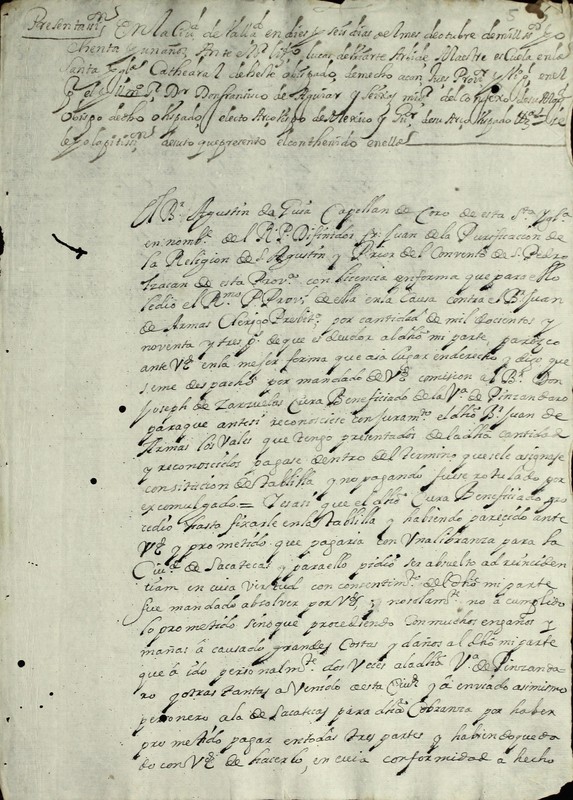 Presentas.on En la Ciu.d de Vallid en dies y seis dias del mes de otubre de mill ss.os y o
chenta y un años, Ante el S.r Lucas de Uriarte Arvide Maestre escuela en la
santa Ygl.a Cathedral deste obispado, derecho Prov.or y Vic.o en el
p.r el Yll.mo S.r D.r Don francisco de Aguiar y Seixas mi s.r del Consejo de su Mag.d
Obispo de dho obispado, electo Arcobispo de Mexico y de su Arcobispado
se leyo la petis.on de uso que presento el conthenido en ella
El B.r Agustin de la Guia Capellan de Coro de esta S.ta Ygl.a
en nomb.e del R. P. Difinidor fr. Juan de la Purificacion de
la Religion de S. Agustin y Prior del Convento de S. Pedro
tzacan de esta Prov.a con licencia en forma que para ello
le dio el R.mo P. Prov.l de ella en la Causa contra el B.r Juan
de Armas Clerigo Presbit.o por cantidad de mil docientos y
noventa y tres p.s de que es deudor al dho mi parte, parezco
ante Vd en la mejor forma que aia lugar en derecho y digo que
se me despachó por mandado de Vd comision al B.r Don
Joseph de Zarzuelas Cura Beneficiado de la V.a de Pinzandaro
para que ante si reconosiese con juram.to el dho B.r Juan de
Armas los Vales que tengo presentados de la dha cantidad
y reconosidos pagase dentro del termino que se le asignase
con sitacion de tablilla y no pagando fuese rotulado por
excomulgado = Y es asi que el dho Cura Beneficiado pro
cedio hasta fixarle en la tablilla y habiendo paresido ante
Vd y prometido que pagaria con Una libranza para la
Ciu.d de Sacatecas y para ello pidio ser absuelto ad reinciden
tiam en cuia virtud con consentim.to del dho mi parte
fue mandado absolver por Vd, y no solam.te no á cumplido
lo prometido sino que procediendo con muchos engaños y
mañas á causado grandes Costas y daños al dho mi parte
que á ido personalm.te dos Veces a la dha V.a de Pinzanda-
ro y otras tantas a Venido a esta Ciu.d y á enviado asimismo
personero a la de Sacatecas para dha Cobranza por haber
prometido pagar en todas tres partes y habiendo queda
do con Vd de hacerlo, en cuia conformidad á hecho